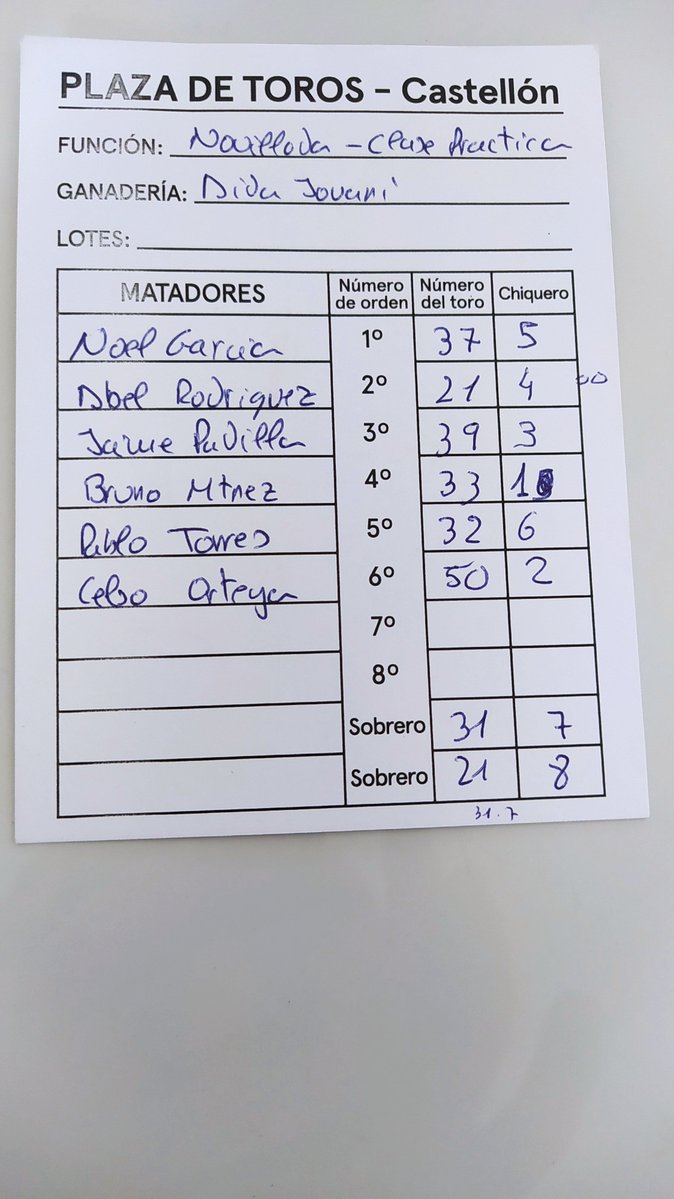 PLAZA DE TOROS - Castellón
FUNCIÓN: Novillada - Clase Practica
GANADERÍA: Aida Jovani
LOTES:
MATADORES Número de orden Número del toro Chiquero
Noel Garcia 1º 37 5
Abel Rodriguez 2º 21 4
Jaime Padilla 3º 39 3
Bruno Mtnez 4º 33 1
Pablo Torres 5º 32 6
Celso Ortega 6º 50 2
7º
8º
Sobrero 31 7
Sobrero 21 8
31.7